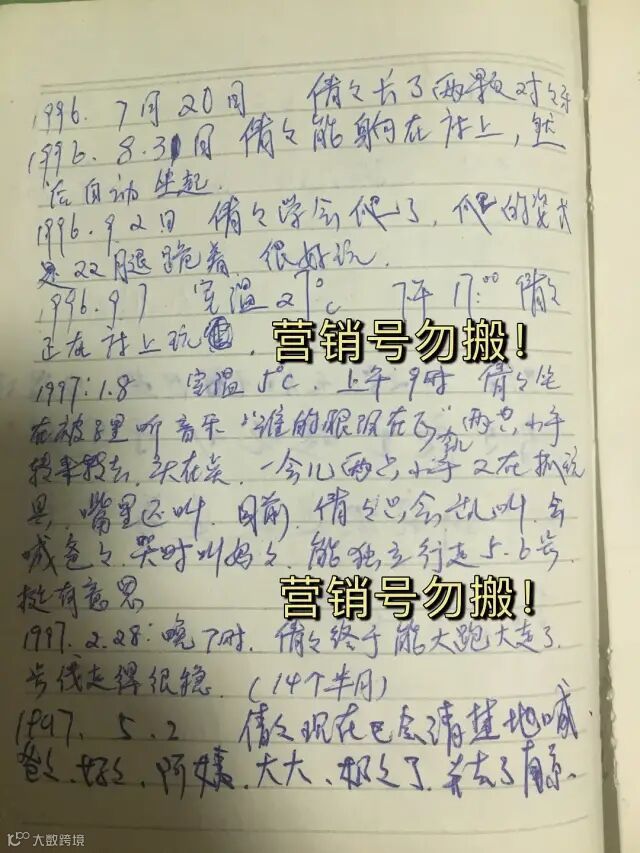 1996. 7月20日 倩々长了两颗对々牙
1996. 8.31日 倩々能躺在床上，然
后自动坐起.
1996.9.2日 倩々学会爬了，爬的姿式
是双腿跪着 很好玩.
1996.9.7 室温27℃ 下午17:00 倩々
正在床上玩
营销号勿搬！
1997:1.8 室温5℃. 上午9时 倩々坐
在被里听音乐 两只小手
转来转去，头在 一会儿两只小手又在抓玩
具，嘴里还叫. 目前，倩々只会乱叫. 会
喊爸々. 哭时叫妈々. 能独立行走5.6步.
挺有意思
营销号勿搬！
1997.2.28: 晚7时. 倩々终于能大跑大走了.
步伐走得很稳. (14个半月)
1997. 5. 2 倩々现在已会清楚地喊.
爸々. 阿姨. 大大、 了
大数跨境